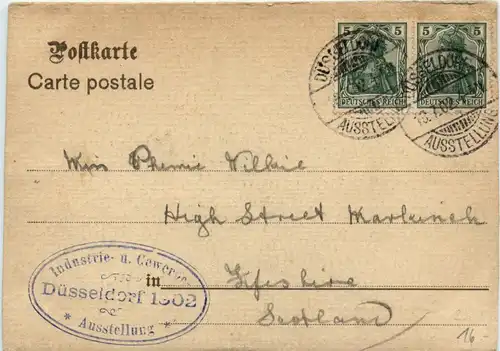 Postkarte
Carte postale
5 5
DEUTSCHES REICH
5 5
DEUTSCHES REICH
DÜSSELDORF
AUSSTELLUNG
DÜSSELDORF
AUSSTELLUNG
Miss Phemie Wilkie
High Street Markinch
in Fifeshire
Scotland
Industrie- u. Gewerbe
Düsseldorf 1902
* Ausstellung *
16-